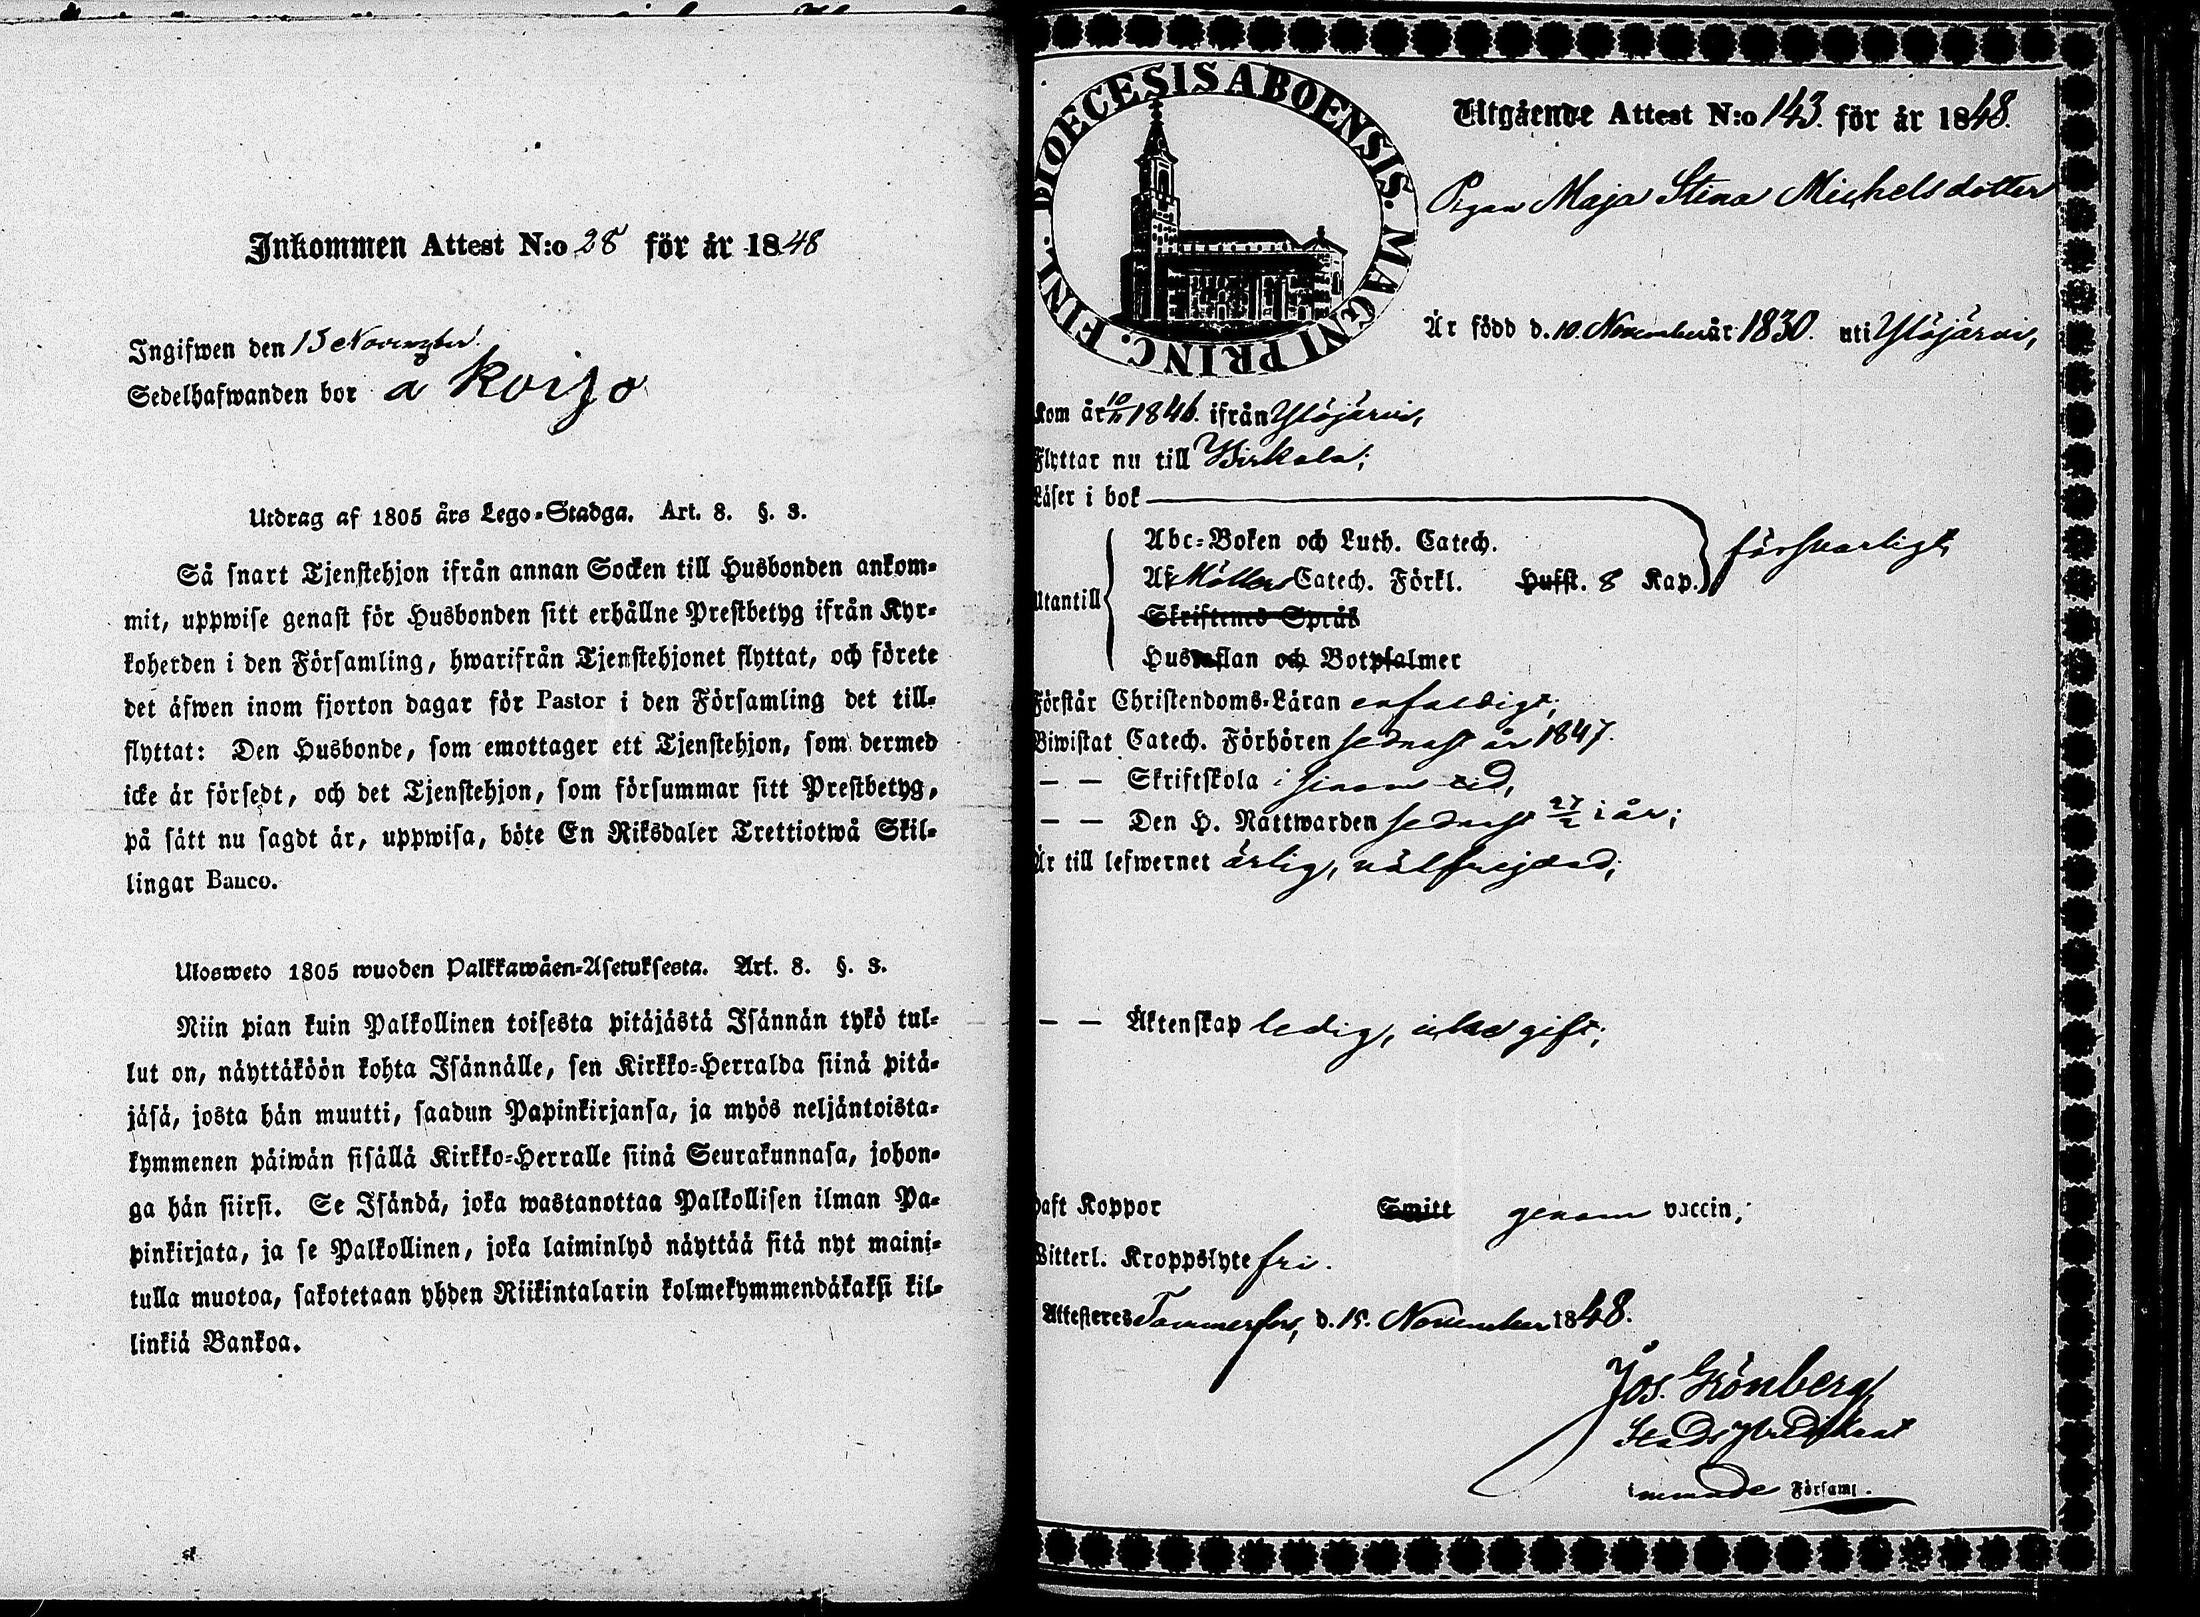 Inkommen Attest N:o 28 för år 1848
Ingifwen den 15 November
Sedelhafwanden bor à Koijo
Utdrag af 1805 års Lego-Stadga. Art. 8. §. 3.
Så snart Tjenstehjon ifrån annan Socken till Husbonden ankom-
mit, uppwise genast för Husbonden sitt erhållne Prestbetyg ifrån Kyr-
koherden i den Församling, hwarifrån Tjenstehjonet flyttat, och förete
det äfwen inom fjorton dagar för Pastor i den Församling det till-
flyttat: Den Husbonde, som emottager ett Tjenstehjon, som dermed
icke är försedt, och det Tjenstehjon, som försummar sitt Prestbetyg,
på sätt nu sagdt är, uppwisa, böte En Riksdaler Trettiotwå Skil-
lingar Banco.
Ulosweto 1805 wuoden Palkkawäen-Asetuksesta. Art. 8. §. 3.
Niin pian kuin Palkollinen toisesta pitäjästä Isännän tykö tul-
lut on, näyttäköön kohta Isännälle, sen Kirkko-Herralda siinä pitä-
jäsä, josta hän muutti, saadun Papinkirjansa, ja myös neljäntoista-
kymmenen päiwän sisällä Kirkko-Herralle siinä Seurakunnasa, johon-
ga hän siirsi. Se Isändä, joka wastanottaa Palkollisen ilman Pa-
pinkirjata, ja se Palkollinen, joka laiminlyö näyttää sitä nyt maini-
tulla muotoa, sakotetaan yhden Riikintalarin kolmekymmendäkaksi kil-
linkiä Bankoa.
DIOECESIS ABOENSIS. MAGNI PRINC. FINL.
Utgående Attest N:o 143. för år 1848.
Pigan Maja Stina Michelsdotter
Är född d. 10. November år 1830. uti Ylöjärvi,
Kom år 10/11 1846. ifrån Ylöjärvi,
Flyttar nu till Birkala;
Läser i bok
Abc-Boken och Luth. Catech.
försvarligt,
Af Möllers Catech. Förkl. Hufst. 8 Kap.
Utantill
Skriftenes Språk
Hustaflan och Botpsalmer
Förstår Christendoms-Läran enfaldigt;
Biwistat Catech. Förhören sednast år 1847.
— — Skriftskola i sinom tid,
— — Den H. Nattwarden sednast 27/2 i år;
Är till lefwernet ärlig, välfrejdad;
— — Äktenskap ledig, icke gift;
Haft Koppor Smitt genom vaccin;
Witterl. Kroppslyte fri.
Attesteres Tammerfors, d. 15. November 1848.
Jos. Grönberg
Stads Predikant
Församl.